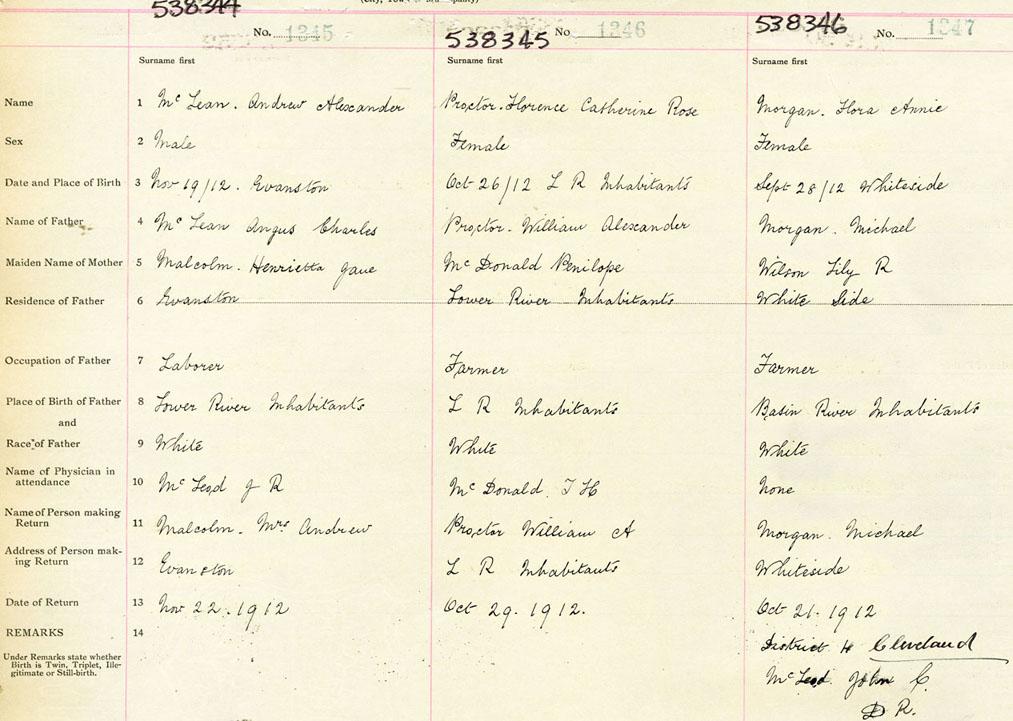 538344
No. 1345
538345
No 1346
538346
No. 1347
Surname first
Surname first
Surname first
Name 1 Mc Lean. Andrew Alexander Proctor. Florence Catherine Rose Morgan. Flora Annie
Sex 2 Male Female Female
Date and Place of Birth 3 Nov 19/12. Evanston Oct 26/12 L R Inhabitants Sept 28/12 Whiteside
Name of Father 4 Mc Lean Angus Charles Proctor. William Alexander Morgan. Michael
Maiden Name of Mother 5 Malcolm. Henrietta Jane Mc Donald Penilope Wilson Lily R
Residence of Father 6 Evanston Lower River Inhabitants White Side
Occupation of Father 7 Laborer Farmer Farmer
Place of Birth of Father 8 Lower River Inhabitants L R Inhabitants Basin River Inhabitants
and
Race of Father 9 White White White
Name of Physician in
attendance 10 Mc Leod J R Mc Donald. J H None
Name of Person making
Return 11 Malcolm. Mrs Andrew Proctor William A Morgan. Michael
Address of Person mak-
ing Return 12 Evanston L R Inhabitants Whiteside
Date of Return 13 Nov 22. 1912 Oct 29. 1912. Oct 21. 1912
REMARKS 14
Under Remarks state whether
Birth is Twin, Triplet, Ille-
gitimate or Still-birth.
District 4 Cleveland
Mc Leod. John C.
D R.